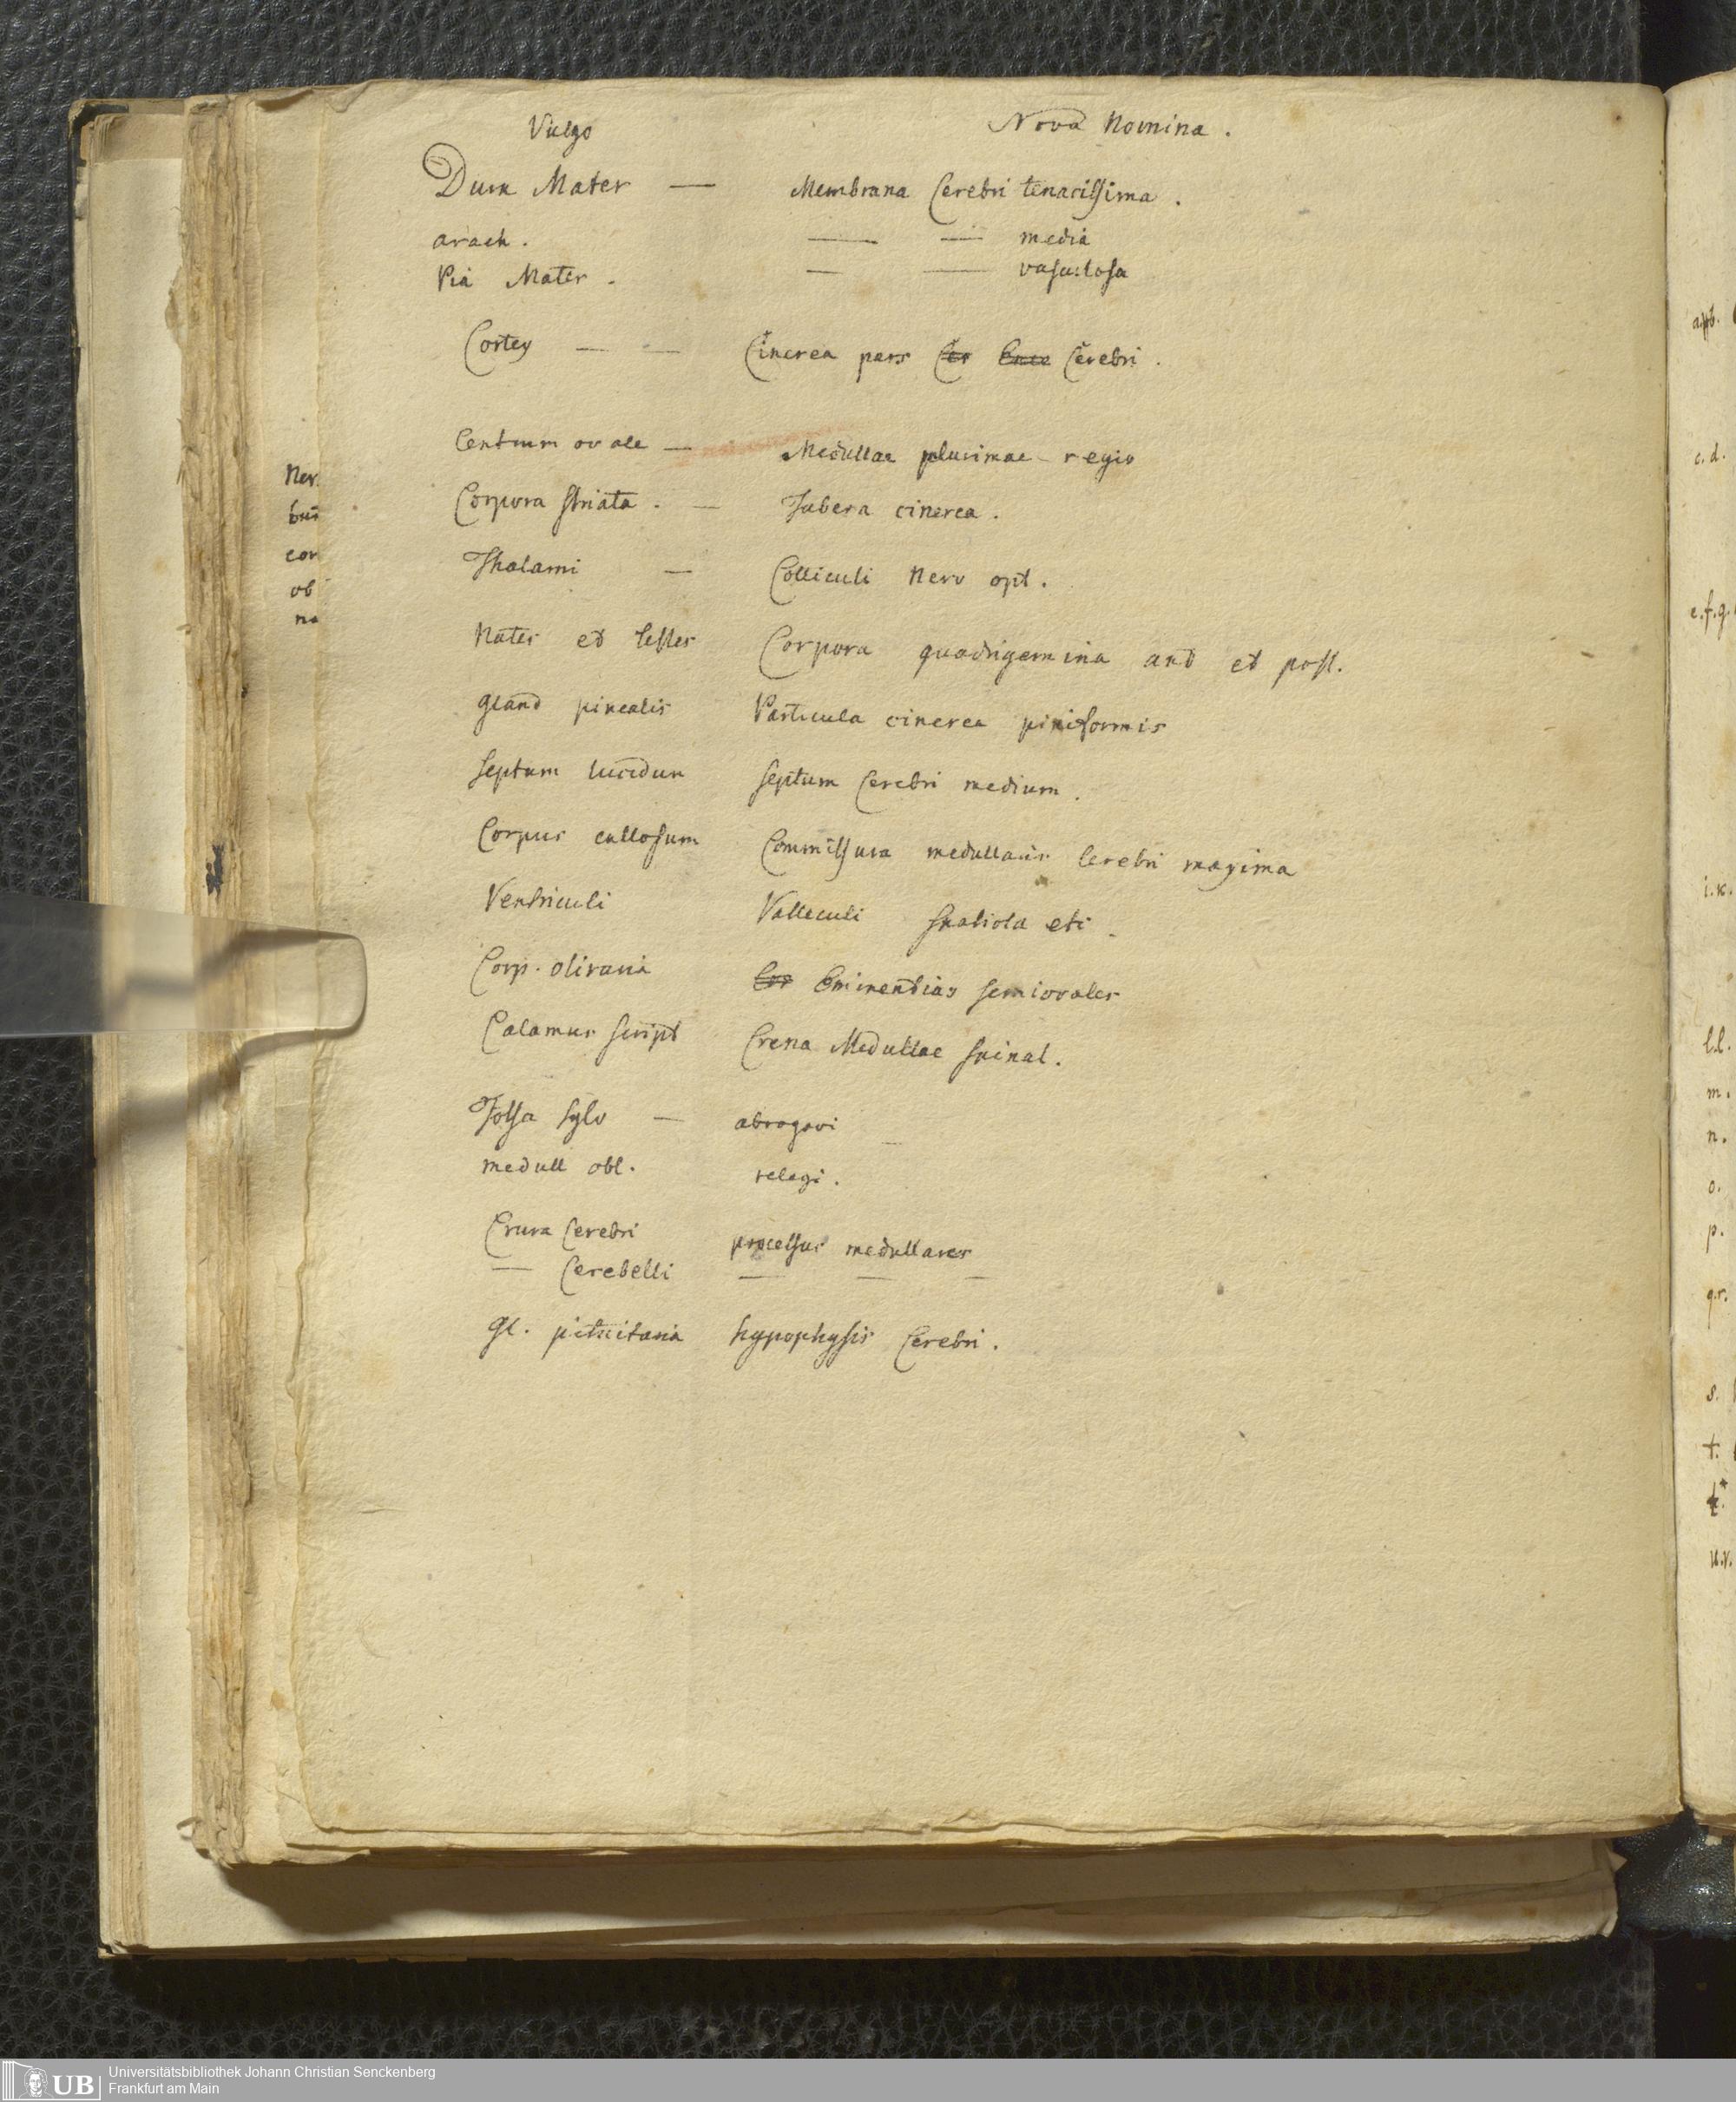 Vulgo Nova Nomina.
Dura Mater — Membrana Cerebri tenacissima.
arach. — — media
Pia Mater. — — vasculosa
Cortex — — Cinerea pars Cer Cerebri.
Centrum ovale — Medullae plurimae regio
Corpora striata. — Tubera cinerea.
Thalami — Colliculi Nerv opt.
Nates et testes Corpora quadrigemina ant et post.
gland pinealis Particula cinerea piniformis
septum lucidum septum Cerebri medium.
Corpus callosum Commissura medullaris Cerebri maxima
Ventriculi Valleculi spatiola etc.
Corp. olivaria Cor Eminentias semiovales
Calamus script Crena Medullae spinal.
Fossa sylv — abrogavi
medull obl. relegi.
Crura Cerebri processus medullares
— Cerebelli — — —
Gl. pituitaria hypophysis Cerebri.
Ner.
bus
cor
ob
na
c.d.
e.f.g.
i.k.
l.l.
m.
n.
o.
p.
q.r.
s.
t.
u.v.
UB
Universitätsbibliothek Johann Christian Senckenberg
Frankfurt am Main